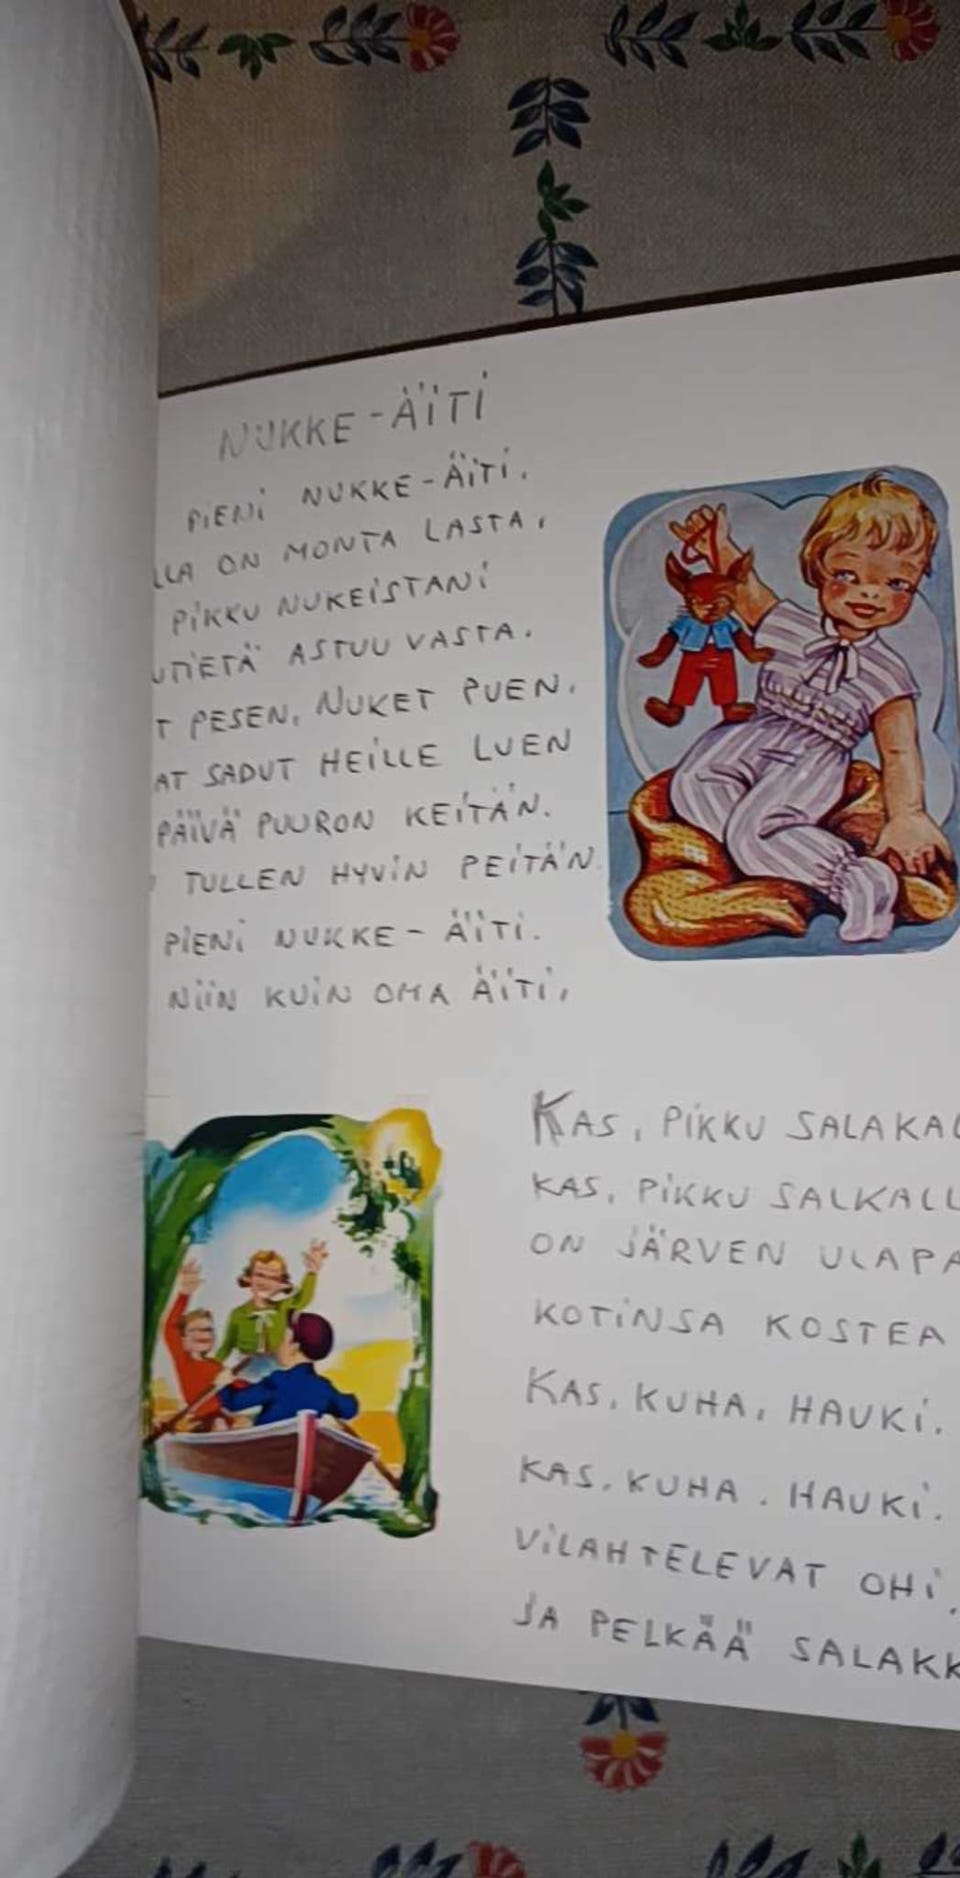 NUKKE-ÄITI
PIENI NUKKE-ÄITI.
LLA ON MONTA LASTA,
PIKKU NUKEISTANI
UTIETÄ ASTUU VASTA.
T PESEN, NUKET PUEN.
AT SADUT HEILLE LUEN
PÄIVÄ PUURON KEITÄN.
TULLEN HYVIN PEITÄN.
PIENI NUKKE-ÄITI.
NIIN KUIN OMA ÄITI,
KAS, PIKKU SALAKAL
KAS, PIKKU SALKALL
ON JÄRVEN ULAPA
KOTINSA KOSTEA
KAS, KUHA, HAUKI.
KAS, KUHA, HAUKI.
VILAHTELEVAT OHI,
JA PELKÄÄ SALAKK